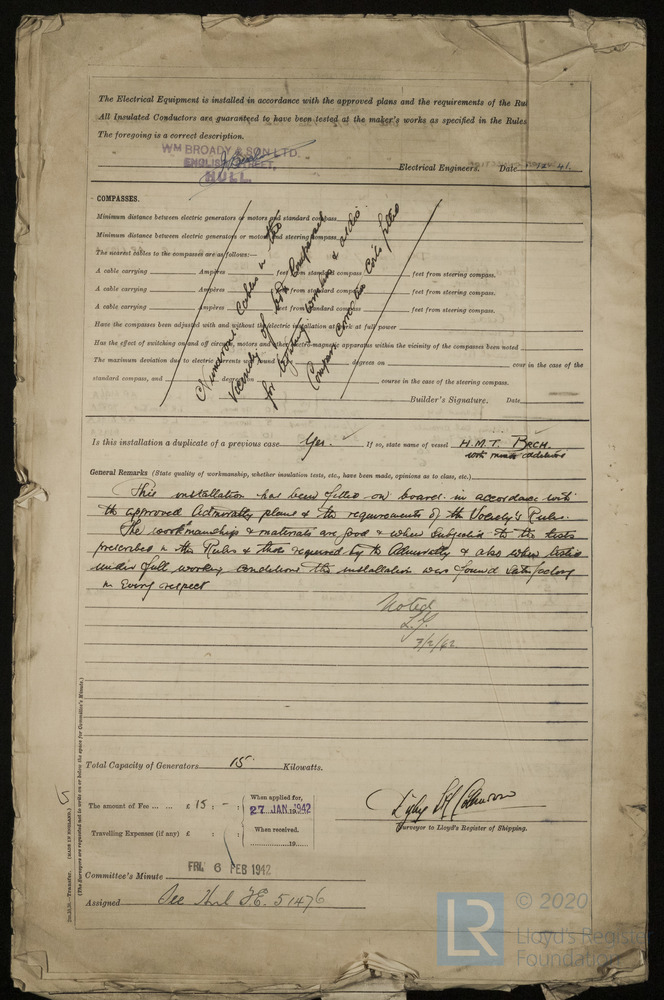 The Electrical Equipment is installed in accordance with the approved plans and the requirements of the Rul
All Insulated Conductors are guaranteed to have been tested at the maker's works as specified in the Rules
The foregoing is a correct description.
WM BROADY & SON LTD.
ENGLISH STREET,
HULL.
Electrical Engineers. Date 1.12.41.
COMPASSES.
Minimum distance between electric generators or motors and standard compass
Minimum distance between electric generators or motors and steering compass
The nearest cables to the compasses are as follows:—
A cable carrying Ampères feet from standard compass feet from steering compass.
A cable carrying Ampères feet from standard compass feet from steering compass.
A cable carrying Ampères feet from standard compass feet from steering compass.
Have the compasses been adjusted with and without the electric installation at work at full power
Has the effect of switching on and off circuits, motors and other electro-magnetic apparatus within the vicinity of the compasses been noted
The maximum deviation due to electric currents was found degrees on cour in the case of the
standard compass, and degrees on course in the case of the steering compass.
Numerous Cables in the
Vicinity of both Compasses
for Degaussing, wireless & asdic
Compass Correction Coils fitted
Builder's Signature. Date
Is this installation a duplicate of a previous case Yes. If so, state name of vessel H.M.T. BACH.
with minor additions
General Remarks (State quality of workmanship, whether insulation tests, etc., have been made, opinions as to class, etc.)
This installation has been fitted on board in accordance with
the approved Admiralty plans & the requirements of the Society's Rules.
The workmanship & materials are good & when subjected to the tests
prescribed in the Rules & those required by the Admiralty & also when tested
under full working conditions the installation was found satisfactory
in every respect
Noted
3/2/42
Total Capacity of Generators 15 Kilowatts.
The amount of Fee ... ... £ 15 : - :
When applied for,
27 JAN 1942
Travelling Expenses (if any) £ : :
When received.
19
Surveyor to Lloyd's Register of Shipping.
Committee's Minute FRI. 6 FEB 1942
Assigned See Hul F.E. 51476
Transfer. (MADE IN ENGLAND.)
(The Surveyors are requested not to write on or below the space for Committee's Minute.)
LR
© 2020
Lloyd's Register
Foundation